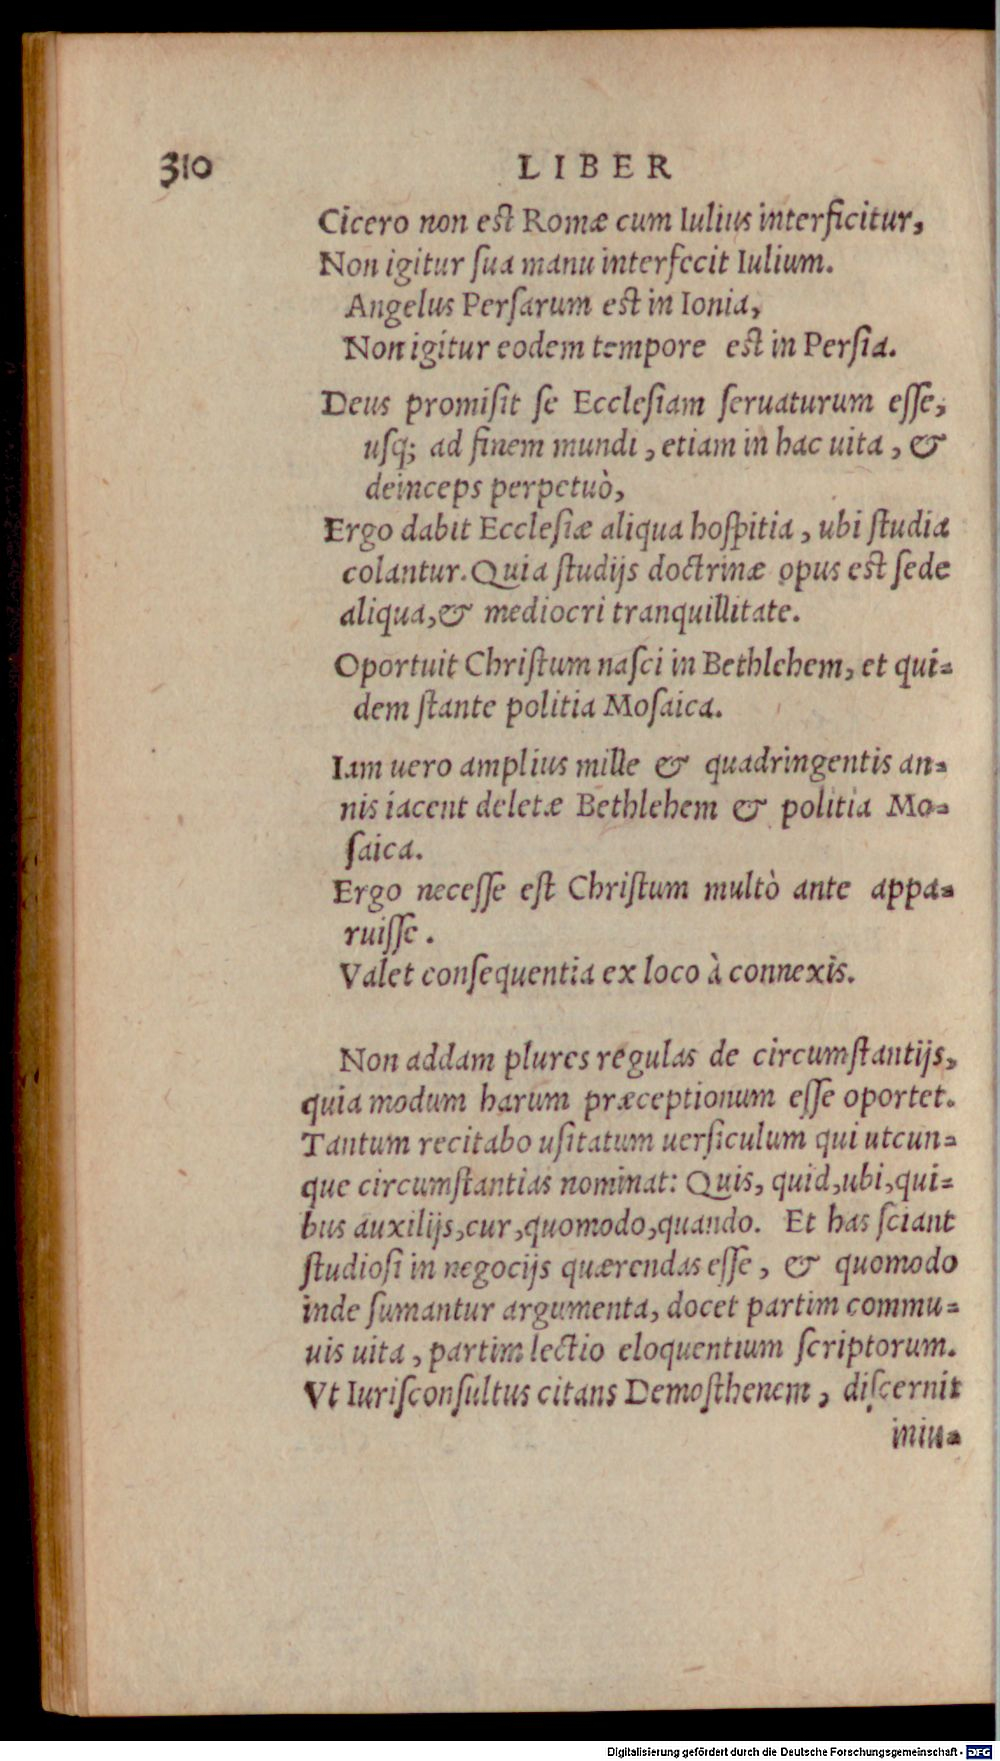 310 LIBER
Cicero non est Romæ cum Iulius interficitur,
Non igitur sua manu interfecit Iulium.
Angelus Persarum est in Ionia,
Non igitur eodem tempore est in Persia.
Deus promisit se Ecclesiam seruaturum esse,
usq; ad finem mundi, etiam in hac uita, &
deinceps perpetuò,
Ergo dabit Ecclesiæ aliqua hospitia, ubi studia
colantur. Quia studijs doctrinæ opus est sede
aliqua, & mediocri tranquillitate.
Oportuit Christum nasci in Bethlehem, et qui-
dem stante politia Mosaica.
Iam uero amplius mille & quadringentis an-
nis iacent deletæ Bethlehem & politia Mo-
saica.
Ergo necesse est Christum multò ante appa-
ruisse.
Valet consequentia ex loco à connexis.
Non addam plures regulas de circumstantijs,
quia modum harum præceptionum esse oportet.
Tantum recitabo usitatum uersiculum qui utcun-
que circumstantias nominat: Quis, quid, ubi, qui-
bus auxilijs, cur, quomodo, quando. Et has sciant
studiosi in negocijs quærendas esse, & quomodo
inde sumantur argumenta, docet partim commu-
uis uita, partim lectio eloquentium scriptorum.
Vt Iurisconsultus citans Demosthenem, discernit
iniu-
Digitalisierung gefördert durch die Deutsche Forschungsgemeinschaft - DFG